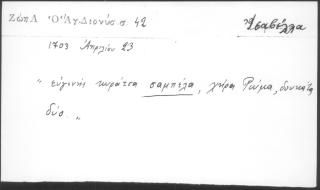 Ζώη Λ Ὁ Ἅγ Διονύσ σ. 42
Ἰσαβέλλα
1703 Ἀπριλίου 23
" εὐγενὴ κυράτσα σαμπέλα, χήρα Ρώμα, δουκάτα
δύο. "